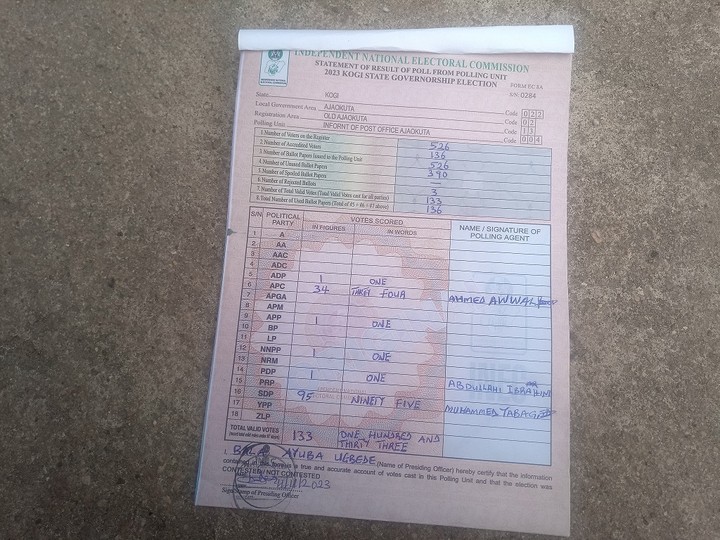 INDEPENDENT NATIONAL ELECTORAL COMMISSION
STATEMENT OF RESULT OF POLL FROM POLLING UNIT
2023 KOGI STATE GOVERNORSHIP ELECTION
FORM EC 8A
S/N: 0284
State: KOGI
Local Government Area AJAOKUTA Code 022
Registration Area OLD AJAOKUTA Code 02
Polling Unit INFORNT OF POST OFFICE AJAOKUTA Code 004
1.Number of Voters on the Register 526
2.Number of Accredited Voters 136
3.Number of Ballot Papers Issued to the Polling Unit 526
4.Number of Unused Ballot Papers 390
5.Number of Spoiled Ballot Papers —
6.Number of Rejected Ballots 3
7.Number of Total Valid Votes (Total Valid Votes cast for all parties) 133
8.Total Number of Used Ballot Papers (Total of #5 + #6 + #7 above) 136
S/N POLITICAL PARTY VOTES SCORED NAME / SIGNATURE OF POLLING AGENT
IN FIGURES IN WORDS
1 A
2 AA
3 AAC
4 ADC
5 ADP 1 ONE
6 APC 34 THIRTY FOUR AHMED AWWAL
7 APGA
8 APM
9 APP 1 ONE
10 BP
11 LP
12 NNPP 1 ONE
13 NRM
14 PDP 1 ONE
15 PRP ABDULLAHI IBRAHIM
16 SDP 95 NINETY FIVE MUHAMMED
17 YPP
18 ZLP
TOTAL VALID VOTES 133 ONE HUNDRED AND THIRTY THREE
I, BALA AYUBA UGBEDE (Name of Presiding Officer) hereby certify that the information
contained in this form is a true and accurate account of votes cast in this Polling Unit and that the election was
CONTESTED / NOT CONTESTED
Sign/Stamp of Presiding Officer